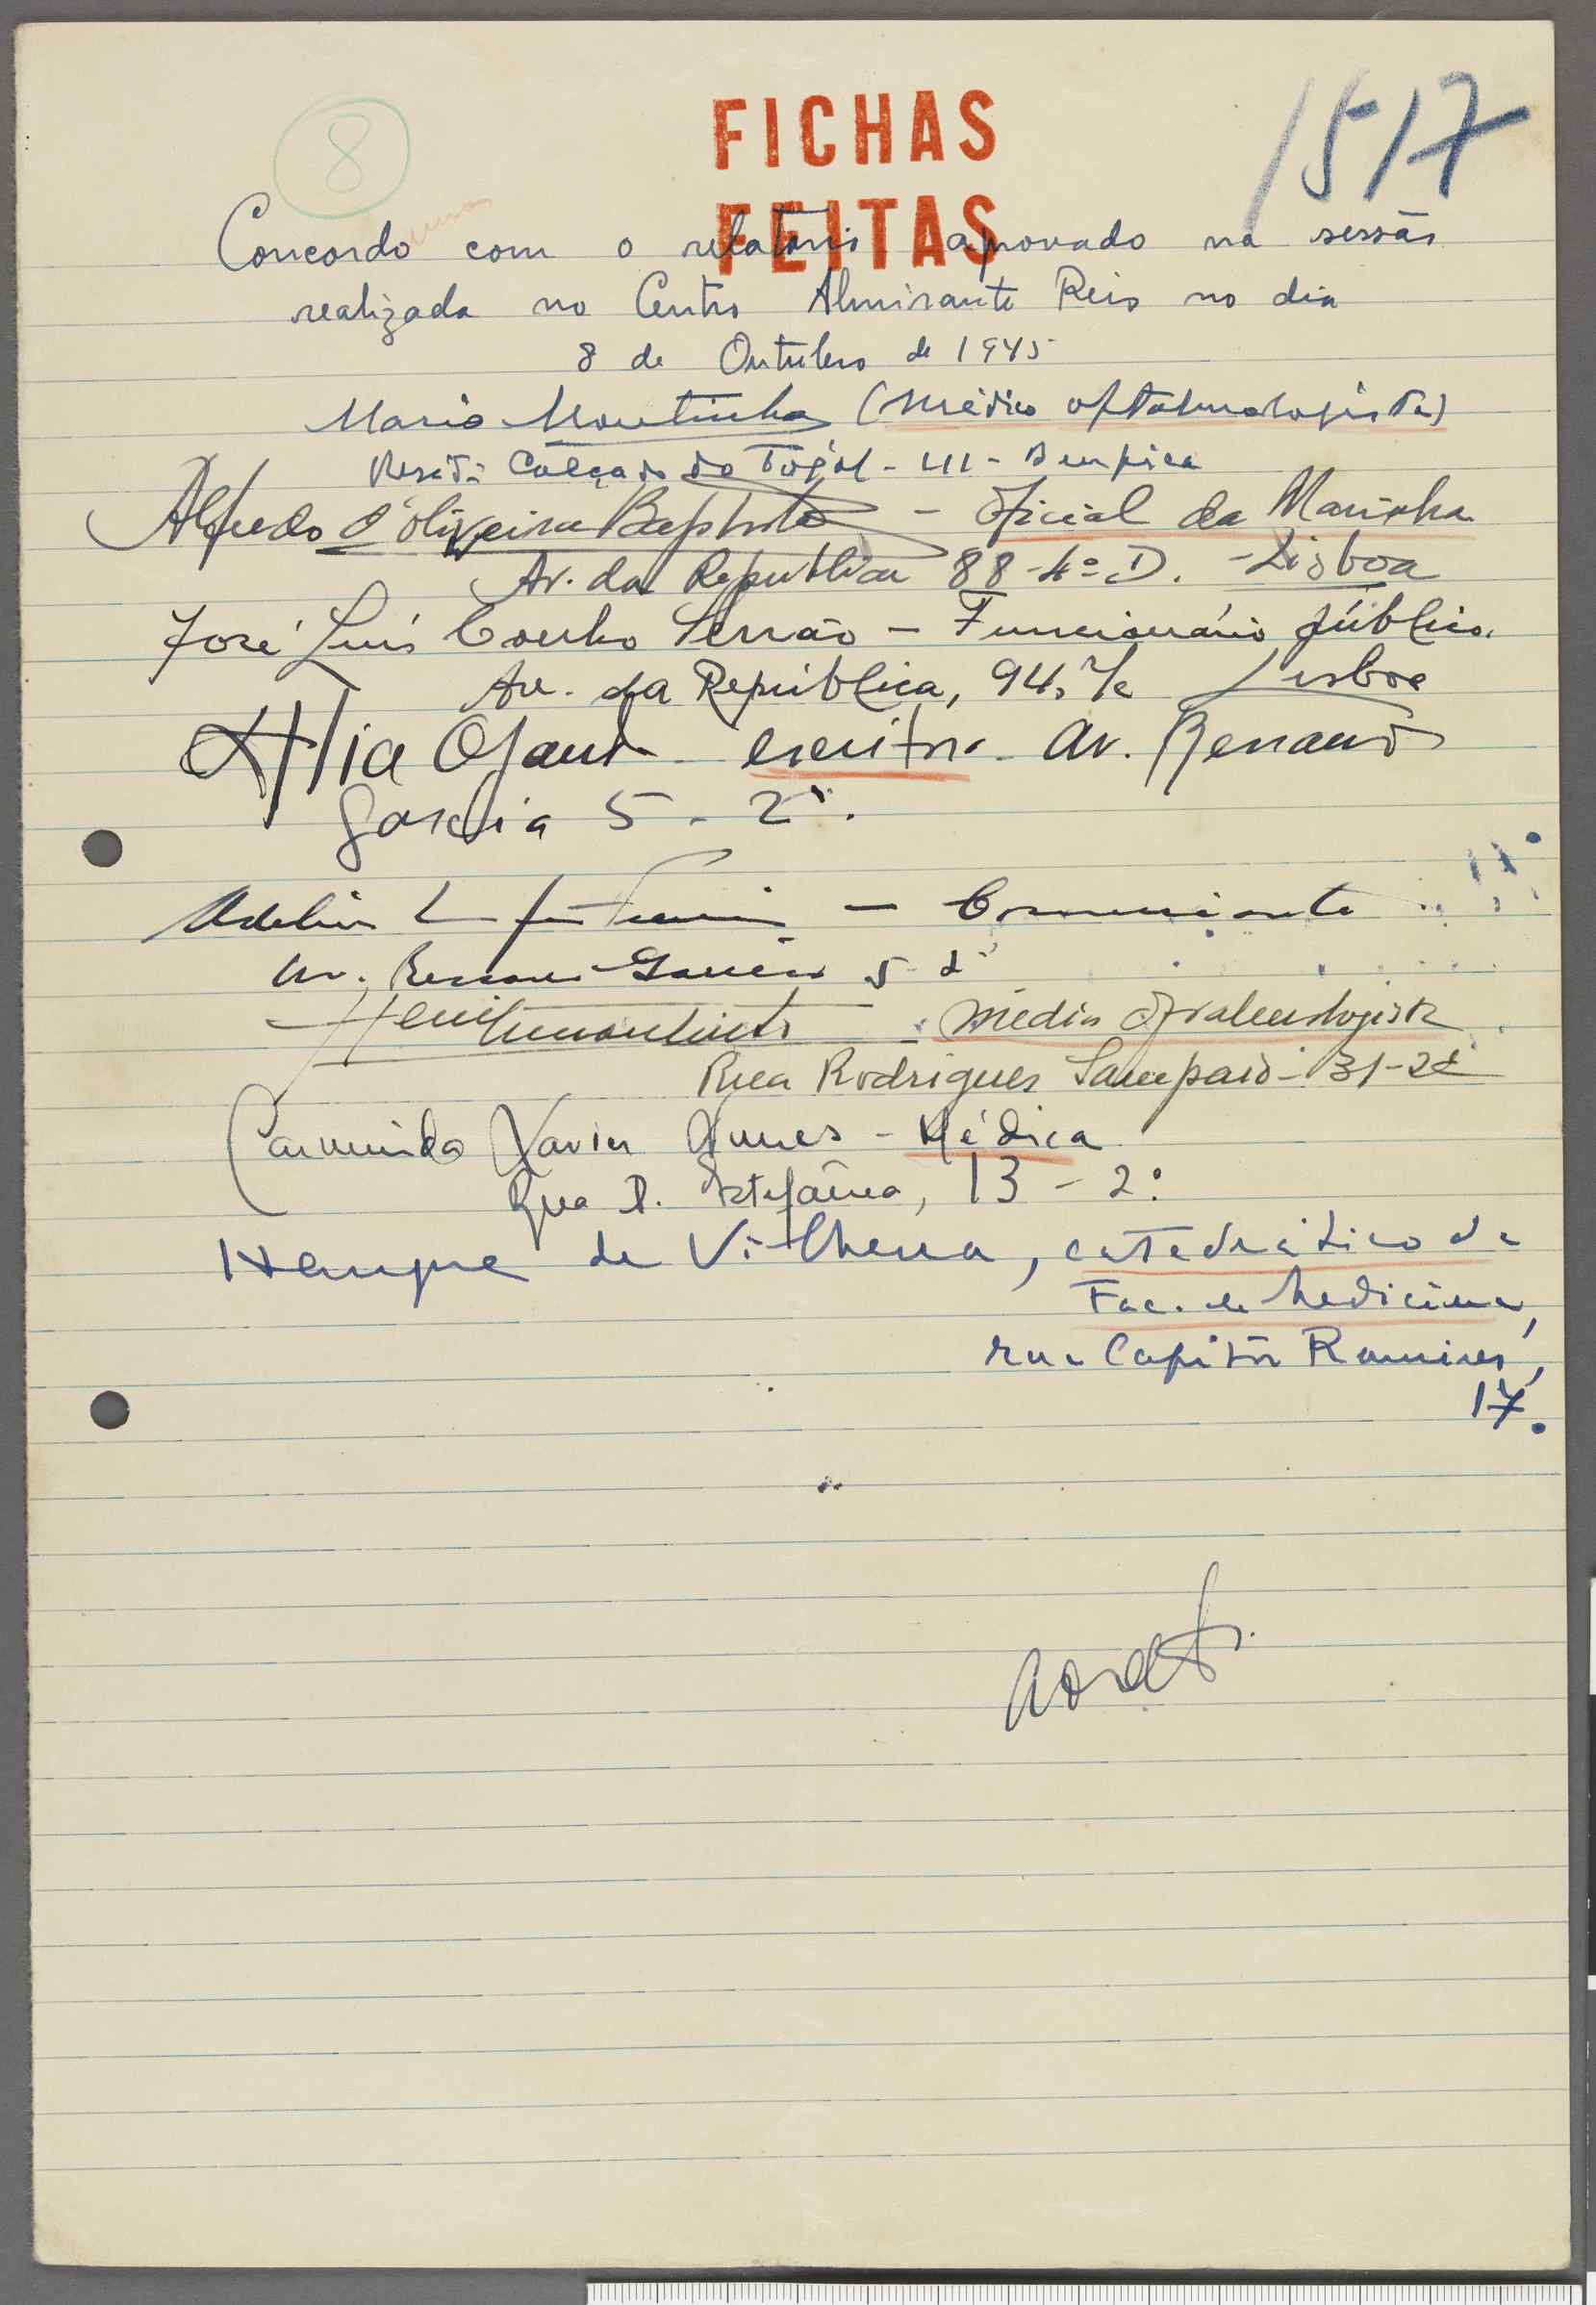 FICHAS
FEITAS
8
1517
Concordo com o relatorio aprovado na sessão
realizada no Centro Almirante Reis no dia
8 de Outubro de 1945
Mario Moutinho (Médico oftalmologista)
Calçada do Tojal - 111 - Bemfica
Alfredo d'Oliveira Baptista - Oficial da Marinha
Av. da Republica 88-4º D. - Lisboa
José Luís Coelho Serrão - Funcionário público.
Av. da República, 94, r/c Lisboa
escritor - Av. Bernardo
Garcia 5 - 2º.
Adelino - Comerciante
Av. Garcia 5 2º
Moutinho - Médico Oftalmologista
Rua Rodrigues Sampaio - 31-2º
Carminda Xavier Nunes - Médica
Rua D. Estefânea, 13 - 2º
Henrique de Vilhena, catedrático da
Fac. de Medicina,
rua Capitão Ramires,
17.